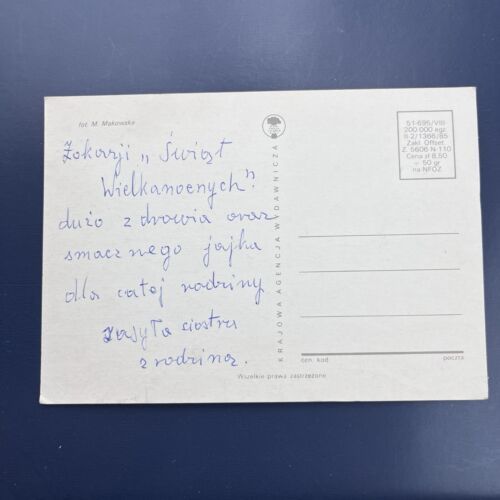 fot. M. Makowska
Zokazji „Świąt
Wielkanocnych".
dużo zdrowia oraz
smacznego jajka
dla całej rodziny
zasyła siostra
z rodziną.
KRAJOWA AGENCJA WYDAWNICZA
51-695/VIII
200 000 egz.
II-2/1366/85
Zakł. Offset.
Z. 5606 N-110
Cena zł 8,50
+ 50 gr
na NFOZ
ozn. kod
poczta
Wszelkie prawa zastrzeżone